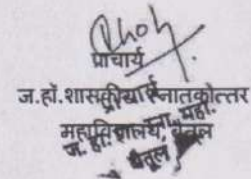 प्राचार्य
ज.हॉ.शासकीय स्नातकोत्तर
महाविद्यालय, बैतूल
ज. हॉ. शा. स्ना. महा.
बैतूल